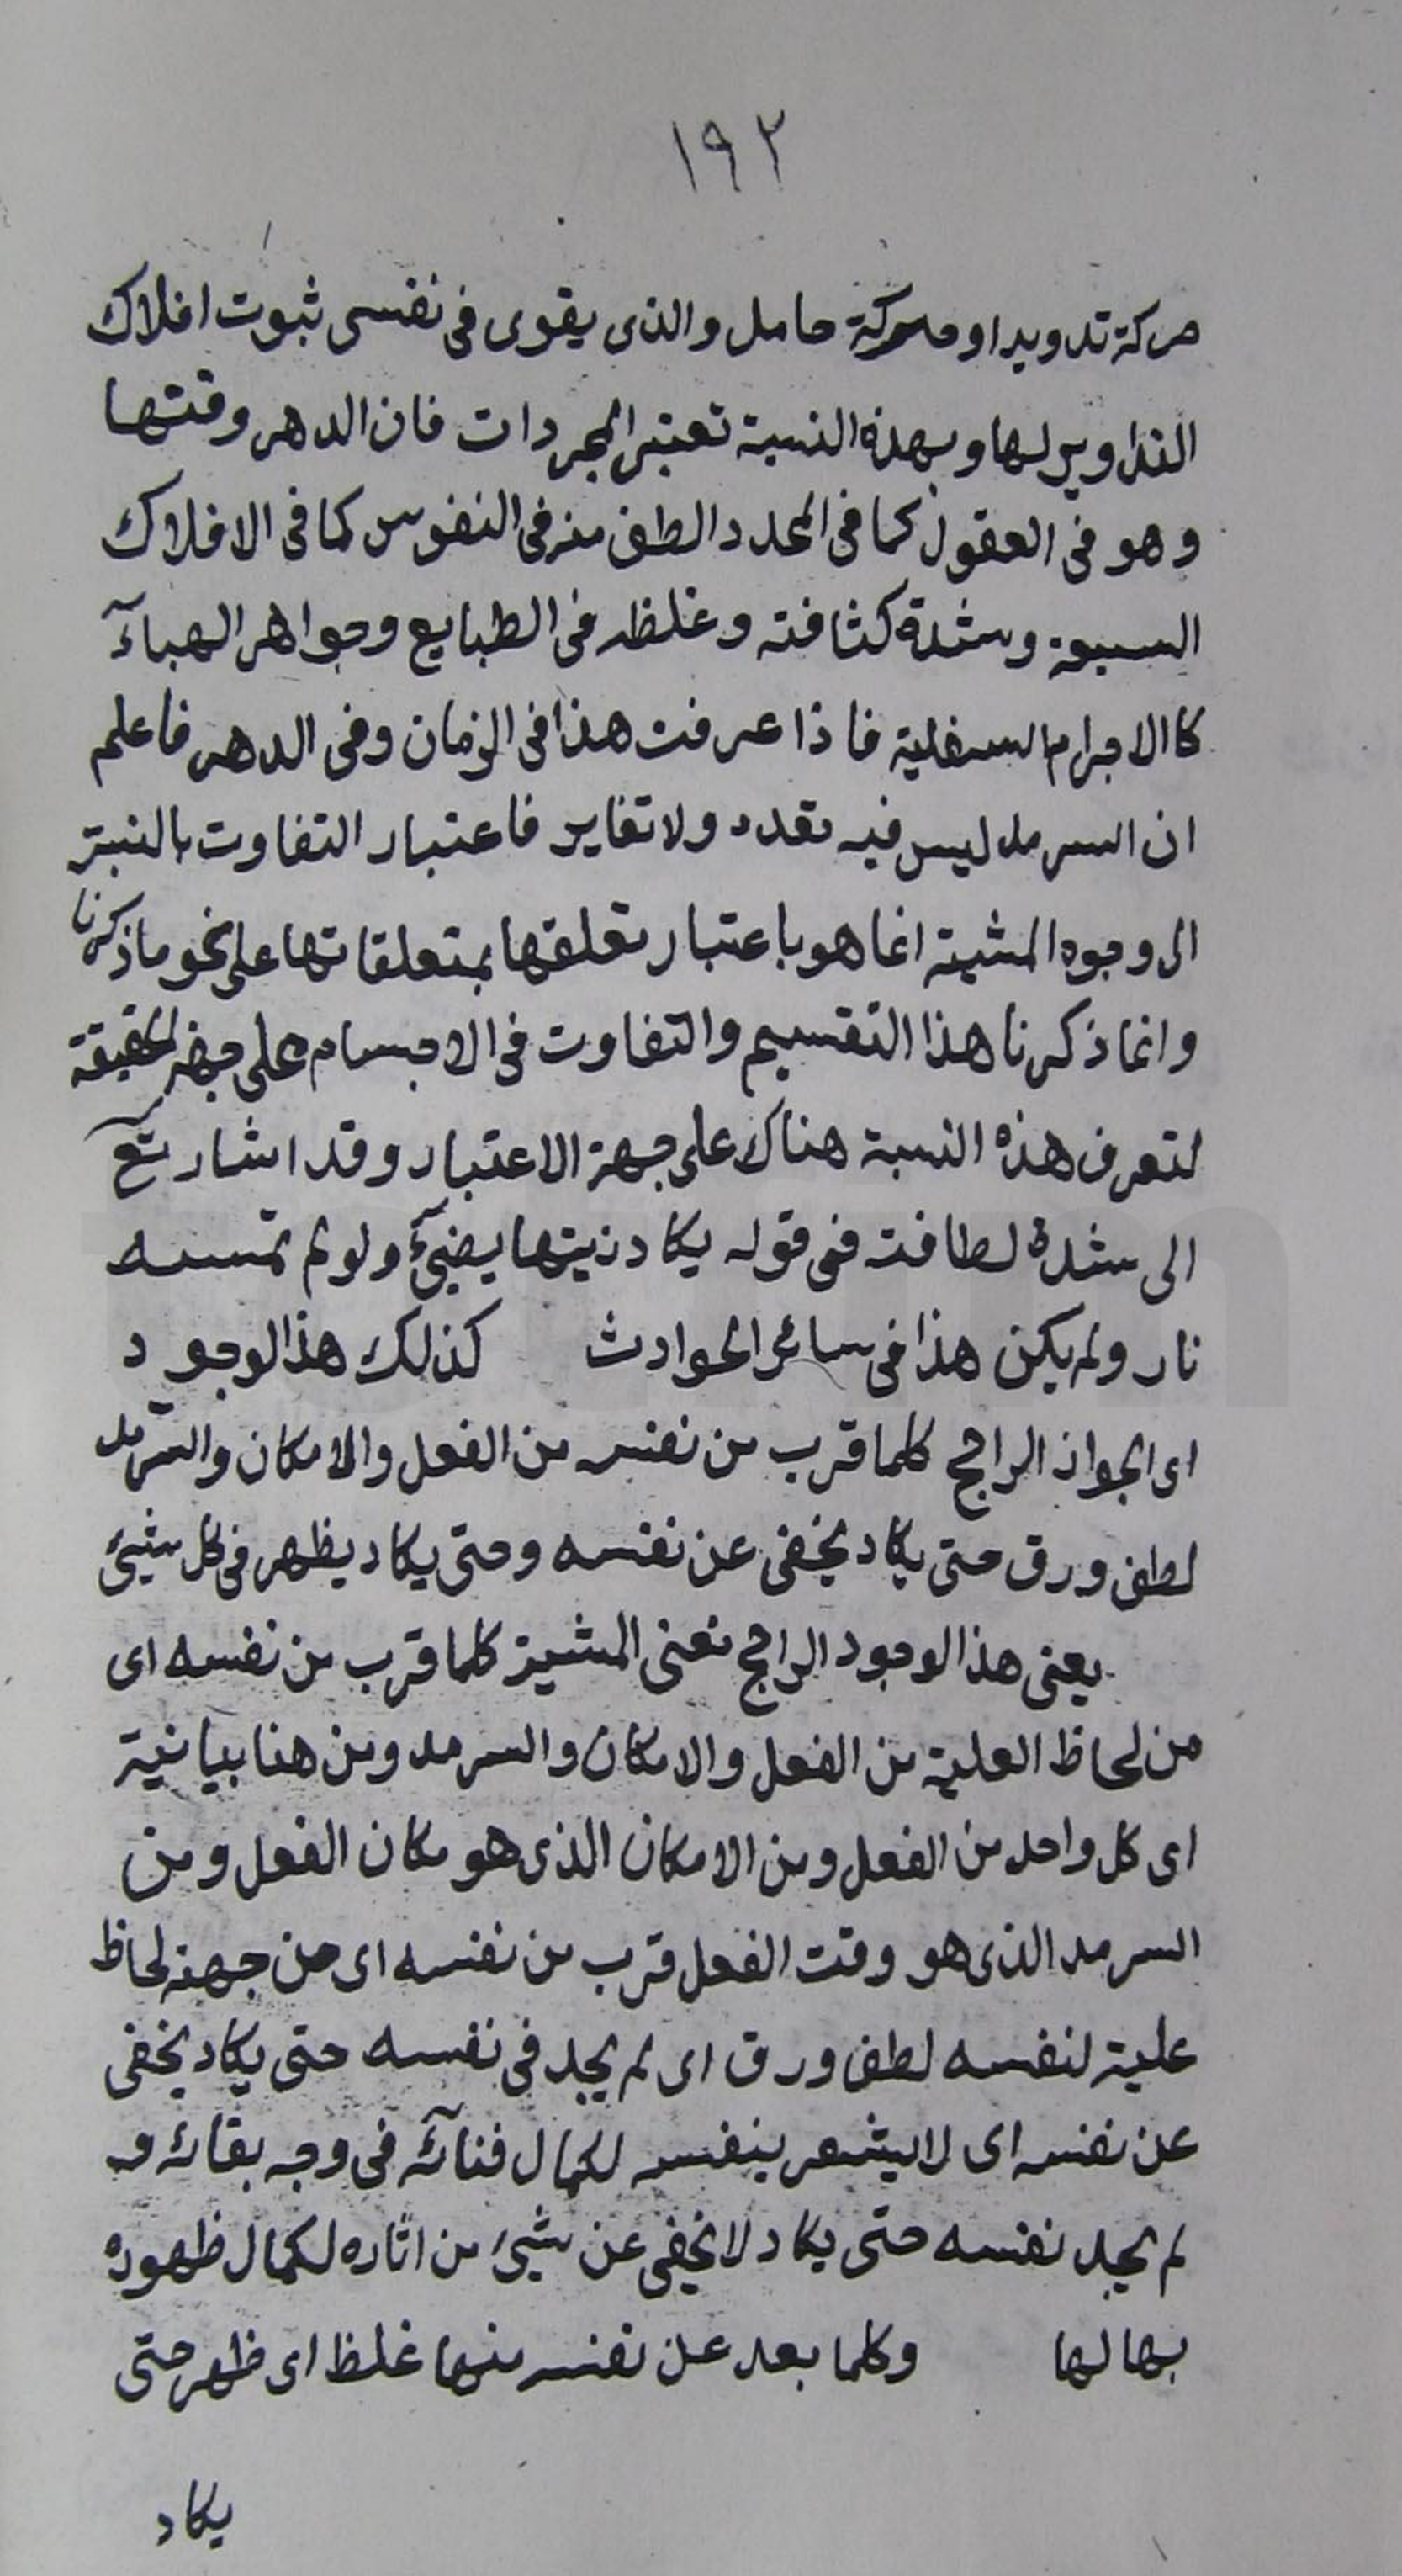 ١٩٢
حركة تدويرا وحركة حامل والذى يقوى فى نفسى ثبوت افلاك
التداوير لها وبهذه النسبة تعتبر المجردات فان الدهر وقتها
وهو فى العقول كما فى المحدد الطف منه فى النفوس كما فى الافلاك
السبعة وشدة كثافته وغلظه فى الطبايع وجواهر الهباء
كالاجرام السفلية فاذا عرفت هذا فى الزمان وفى الدهر فاعلم
ان السرمد ليس فيه تعدد ولا تغاير فاعتبار التفاوت بالنسبة
الى وجوه المشية انما هو باعتبار تعلقها بمتعلقاتها على نحو ما ذكرنا
وانما ذكرنا هذا التقسيم والتفاوت فى الاجسام على جهة الحقيقة
لتعرف هذه النسبة هناك على جهة الاعتبار وقد اشار تع
الى شدة لطافته فى قوله يكاد زيتها يضيئ ولو لم تمسسه
نار ولم يكن هذا فى سائر الحوادث كذلك هذا الوجود
اى الجواز الراجح كلما قرب من نفسه من الفعل والامكان والسرمد
لطف ورق حتى يكاد يخفى عن نفسه وحتى يكاد يظهر فى كل شيئ
يعنى هذا الوجود الراجح نعنى المشية كلما قرب من نفسه اى
من لحاظ العلية من الفعل والامكان والسرمد ومن هنا بيانية
اى كل واحد من الفعل ومن الامكان الذى هو مكان الفعل ومن
السرمد الذى هو وقت الفعل قرب من نفسه اى من جهة لحاظ
علية لنفسه لطف ورق اى لم يجد فى نفسه حتى يكاد يخفى
عن نفسه اى لا يشعر بنفسه لكمال فنآئه فى وجه بقائه و
لم يجد نفسه حتى يكاد لا يخفى عن شيئ من اثاره لكمال ظهوره
بها لها وكلما بعد عن نفسه منها غلظ اى ظهر حتى
يكاد